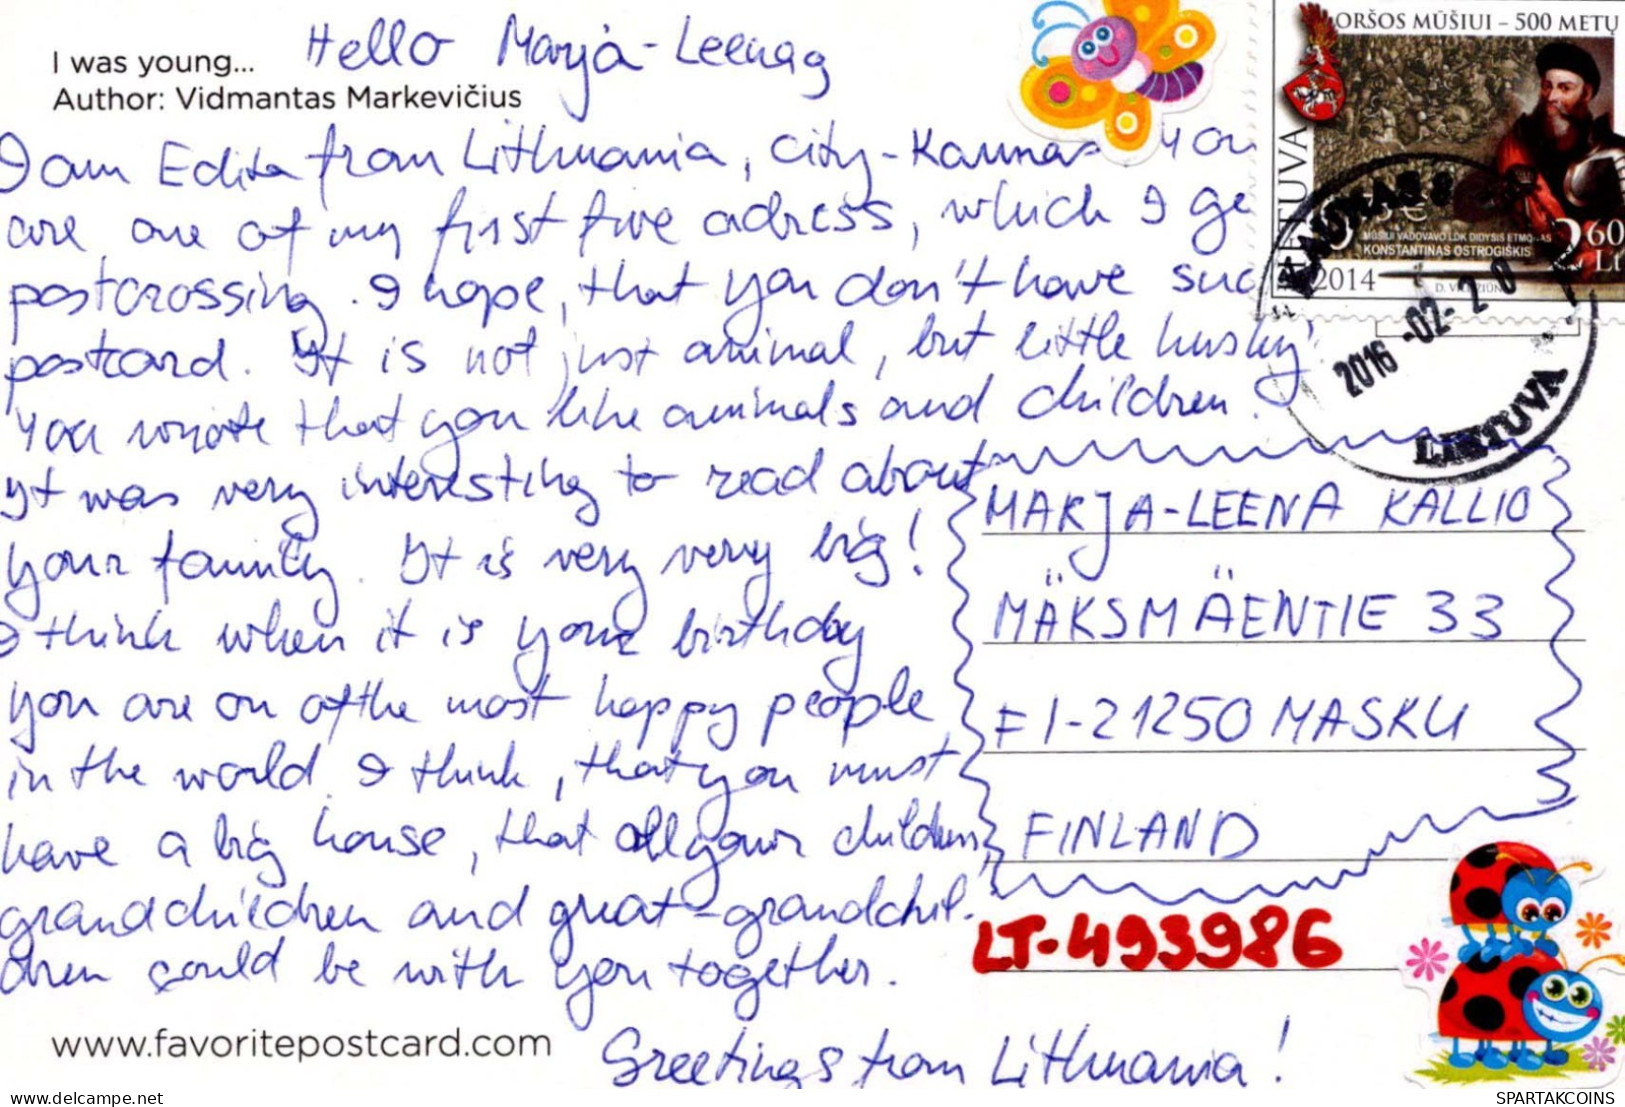 I was young...
Author: Vidmantas Markevičius
Hello Marja-Leena
I am Edita from Lithuania, city-Kaunas You
are one of my first five adress, which I ge
postcrossing. I hope, that you don't have suc
postcard. It is not just animal, but little husky.
You wrote that you like animals and children.
It was very interesting to read about
your family. It is very very big!
I think when it is your birthday
you are on of the most happy people
in the world. I think, that you must
have a big house, that all your children,
grandchildren and great-grandchil-
dren could be with you together.
Greetings from Lithuania!
www.favoritepostcard.com
ORŠOS MŪŠIUI – 500 METŲ
LIETUVA
MŪŠIUI VADOVAVO LDK DIDYSIS ETMONAS
KONSTANTINAS OSTROGIŠKIS
2 60 Lt
2014
2016-02-20
LIETUVA
MARJA-LEENA KALLIO
MÄKSMÄENTIE 33
FI-21250 MASKU
FINLAND
LT-493986
www.delcampe.net
SPARTAKCOINS